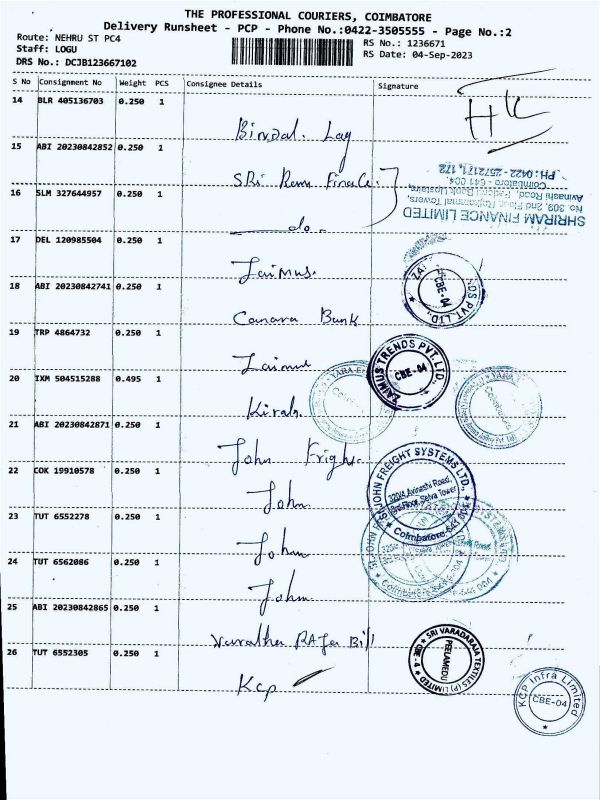 THE PROFESSIONAL COURIERS, COIMBATORE
Delivery Runsheet - PCP - Phone No.:0422-3505555 - Page No.:2
Route: NEHRU ST PC4
RS No.: 1236671
Staff: LOGU
RS Date: 04-Sep-2023
DRS No.: DCJB123667102
S No Consignment No Weight PCS Consignee Details Signature
14 BLR 405136703 0.250 1
15 ABI 20230842852 0.250 1
PH : 0422 - 2572171, 172
Coimbatore - 641 004.
Avinashi Road, Federal Bank Upstairs,
No. 309, 2nd Floor, Rajkammal Towers,
SHRIRAM FINANCE LIMITED
16 SLM 327644957 0.250 1
do
17 DEL 120985504 0.250 1
Zaimus.
CBE-04
18 ABI 20230842741 0.250 1
Canara Bank
19 TRP 4864732 0.250 1
ZAIMUS TRENDS PVT. LTD.
CBE-04
20 IXM 504515288 0.495 1
Coimbatore
21 ABI 20230842871 0.250 1
John
22 COK 19910578 0.250 1
John
ST.JOHN FREIGHT SYSTEMS LTD.,
320/4, Avinashi Road,
3rd Floor, Selva Tower
Coimbatore-641 004
23 TUT 6552278 0.250 1
John
24 TUT 6562086 0.250 1
John
25 ABI 20230842865 0.250 1
SRI VARADARAJA TEXTILES (P) LIMITED
PEELAMEDU
CBE-4
26 TUT 6552305 0.250 1
Kcp
KCP Infra Limited
CBE-04